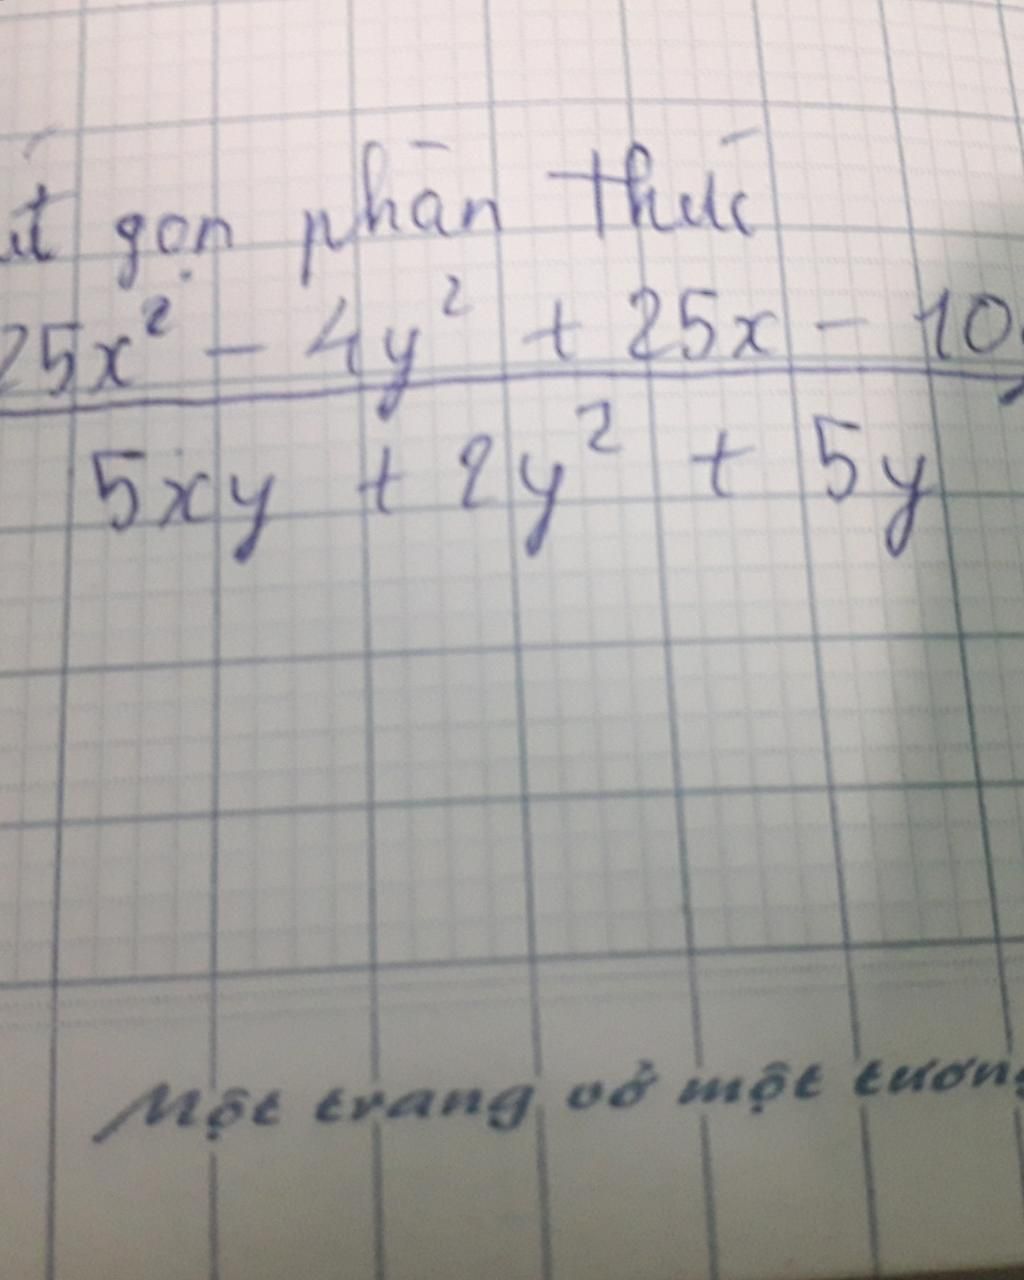 gọn phân thức
25x² - 4y² + 25x - 10y
5xy + 2y² + 5y
Một trang vở một tương